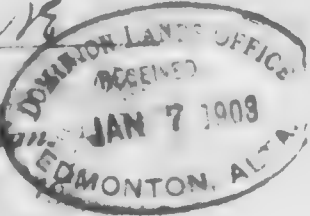 DOMINION LANDS OFFICE
RECEIVED
JAN 7 1903
EDMONTON, ALTA.